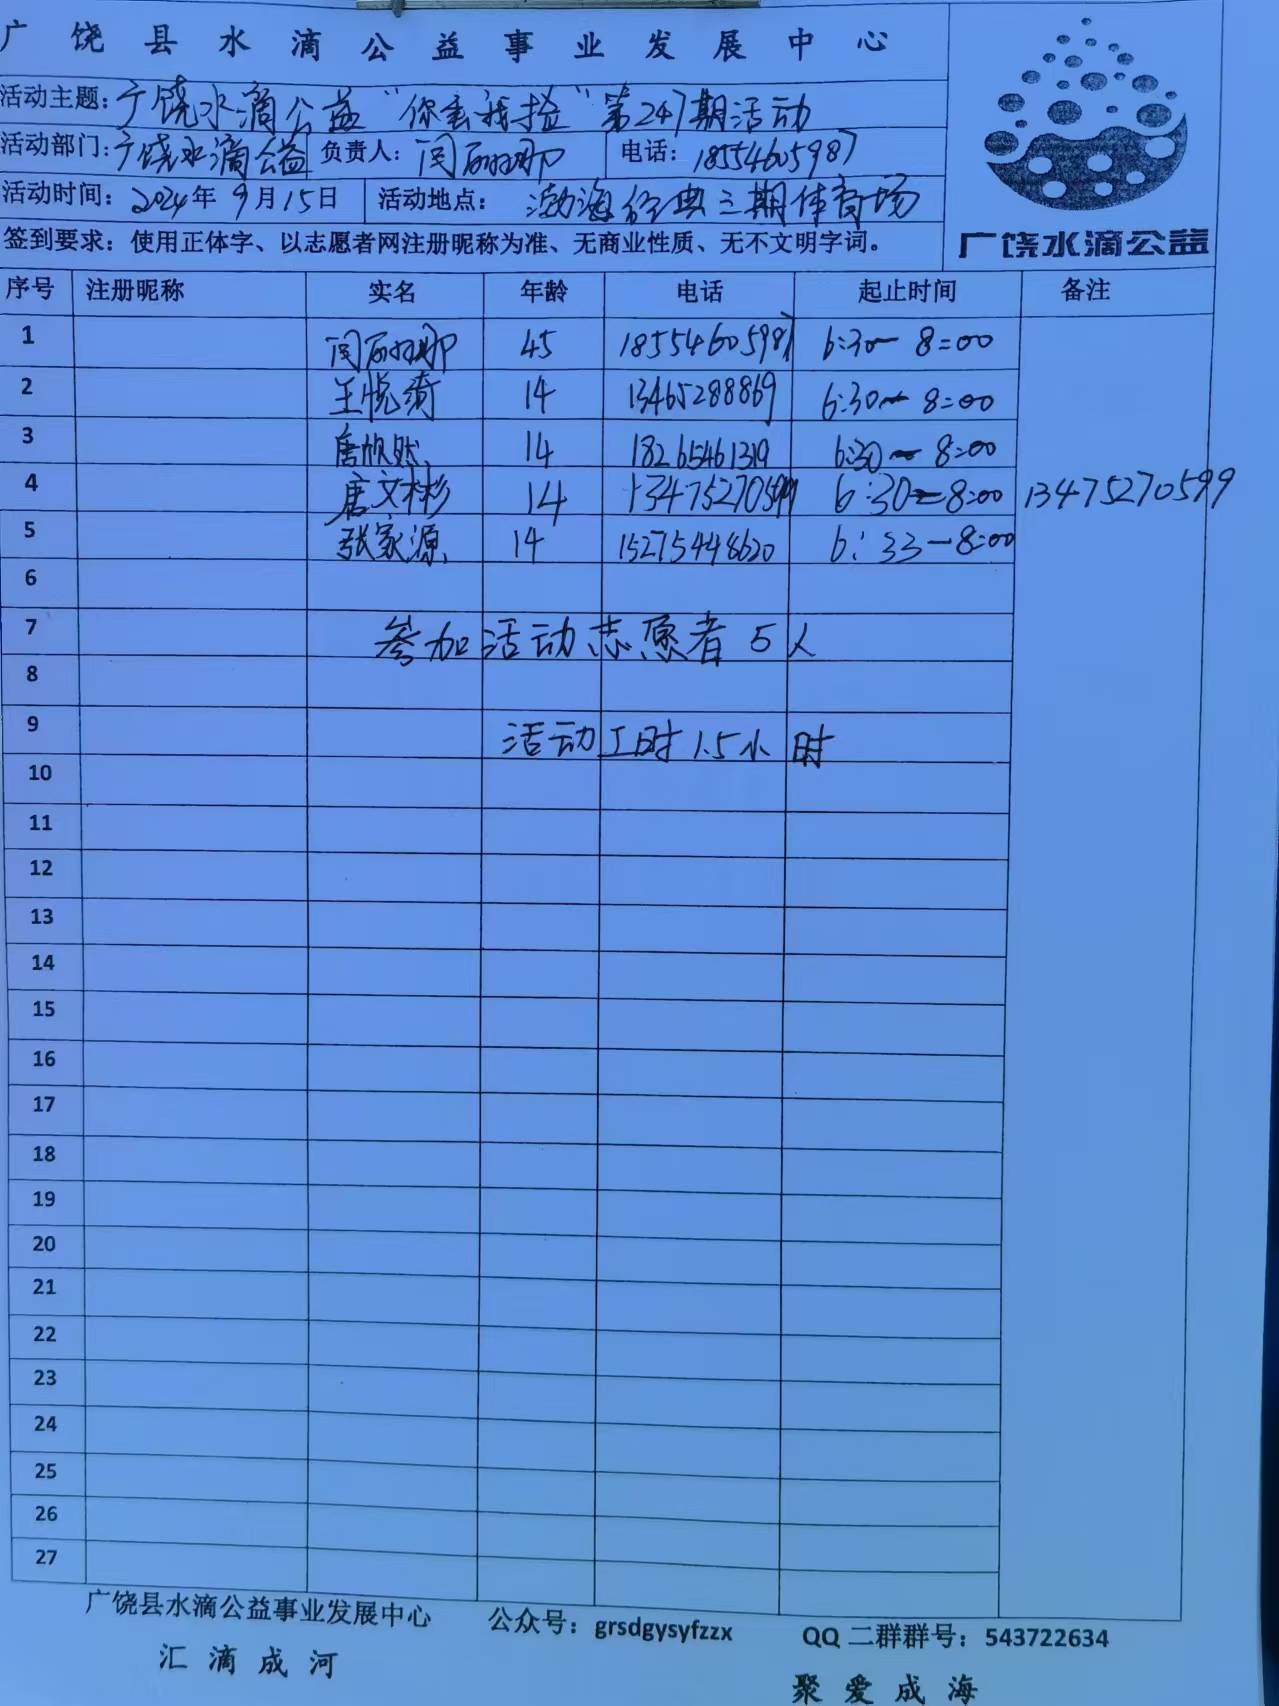 广饶县水滴公益事业发展中心
活动主题：广饶水滴公益“你丢我捡”第247期活动
活动部门：广饶水滴公益 负责人：闫丽娜 电话：18554605987
活动时间：2024年9月15日 活动地点：渤海经典三期体育场
签到要求：使用正体字、以志愿者网注册昵称为准、无商业性质、无不文明字词。
广饶水滴公益
序号 注册昵称 实名 年龄 电话 起止时间 备注
1 闫丽娜 45 18554605987 6:30-8:00
2 王悦 14 13465288869 6:30-8:00
3 唐欣然 14 18265461319 6:30-8:00
4 唐文彬 14 13475270599 6:30-8:00 13475270599
5 张家源 14 15275448620 6:33-8:00
6
7 参加活动志愿者5人
8
9 活动工时1.5小时
10
11
12
13
14
15
16
17
18
19
20
21
22
23
24
25
26
27
广饶县水滴公益事业发展中心 公众号：grsdgysyfzzx QQ二群群号：543722634
汇滴成河 聚爱成海